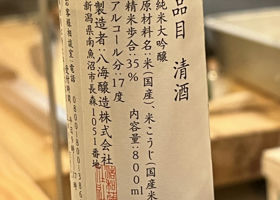 品目 清酒
純米大吟醸
原材料名:米(国産)、米こうじ(国産米
精米歩合:35% 内容量:800ml
アルコール分:17度
製造者:八海醸造株式会社
新潟県南魚沼市長森1051番地
お客様相談室:電話 0800-800-386